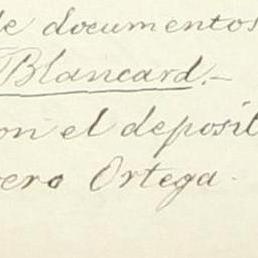 de documentos
Blancard.-
on el deposit
ero Ortega.